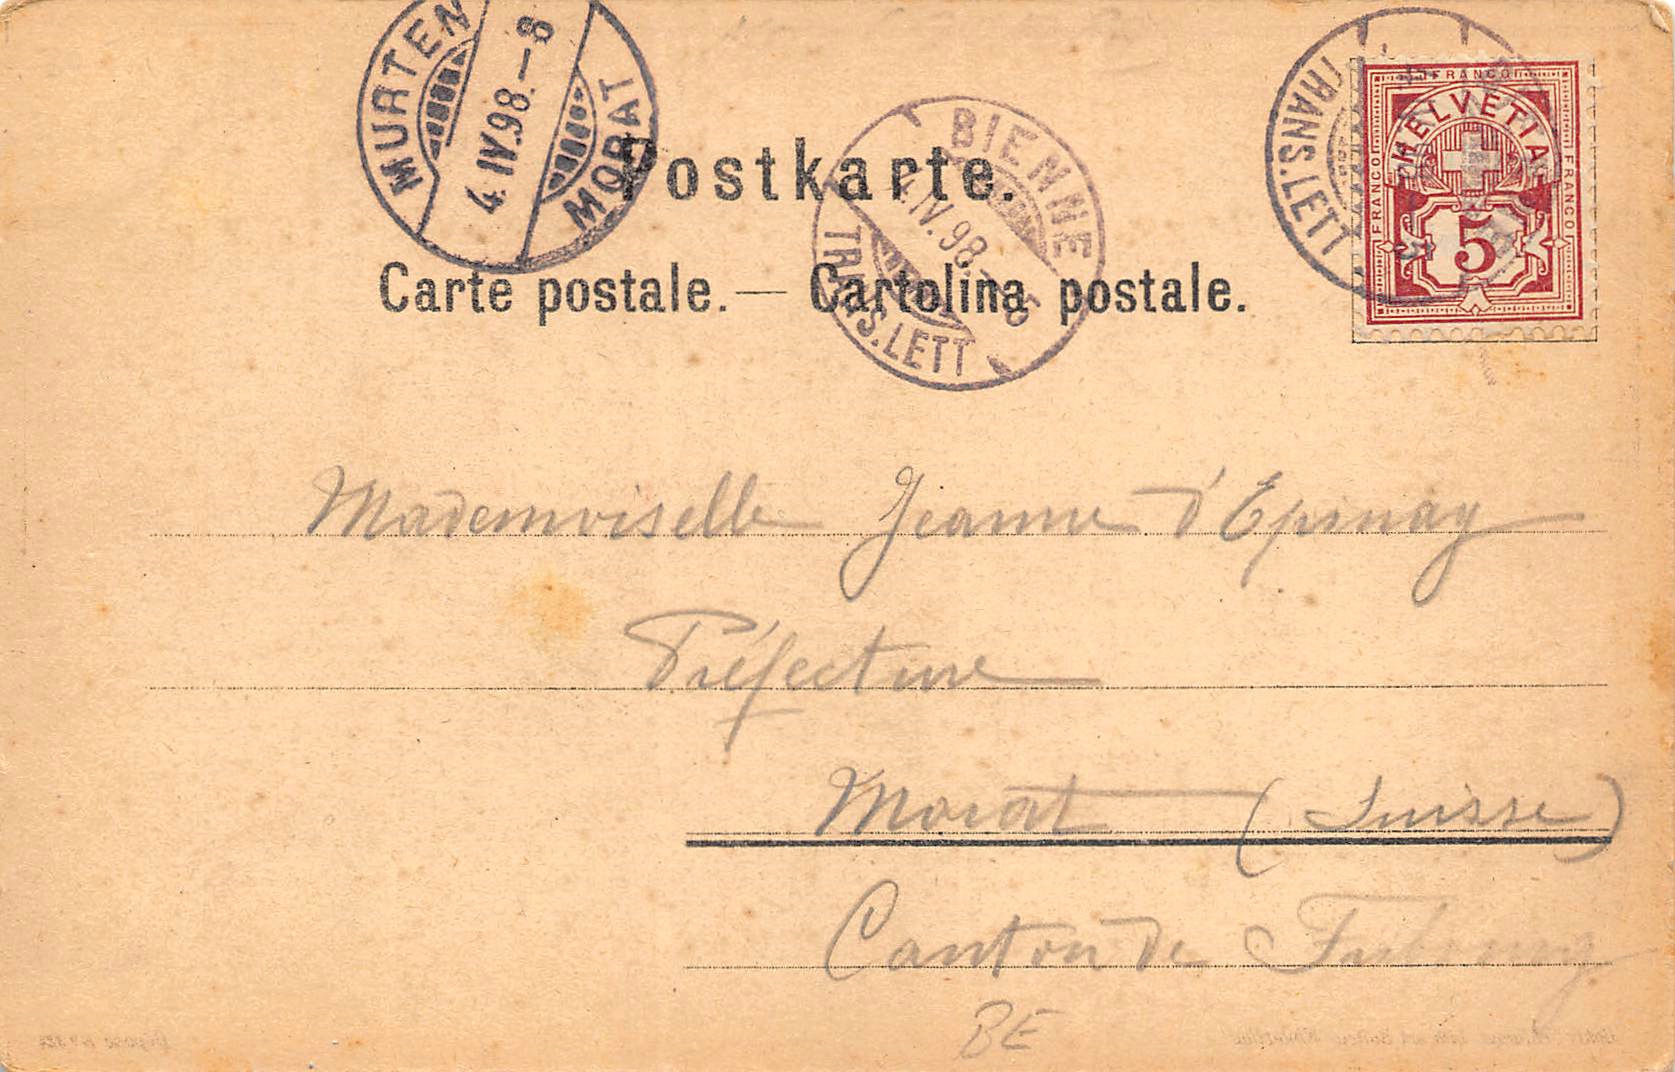 MURTEN
4.IV.98.-8
MORAT
BIENNE
4.IV.98.-5
TRANS.LETT
TRANS.LETT
FRANCO
FRANCO
FRANCO
HELVETIA
5
Postkarte.
Carte postale. — Cartolina postale.
Mademoiselle Jeanne d'Epinay
Préfecture
Morat (Suisse)
Canton de Fribourg
BE